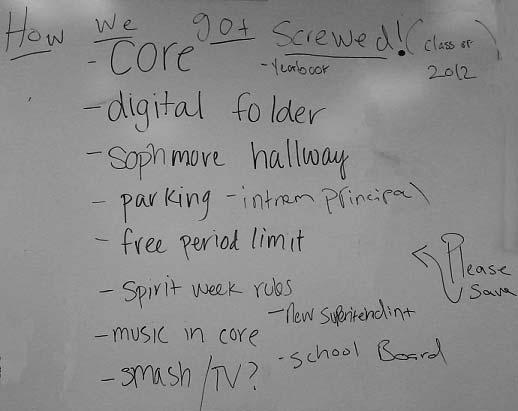 How we got Screwed! (class of 2012)
- Core
- Yearbook
- digital folder
- Sophmore hallway
- parking - intrem principal
- free period limit
- Spirit week rules
- New superitendint
- music in core
- School Board
- smash/TV?
Please
Save